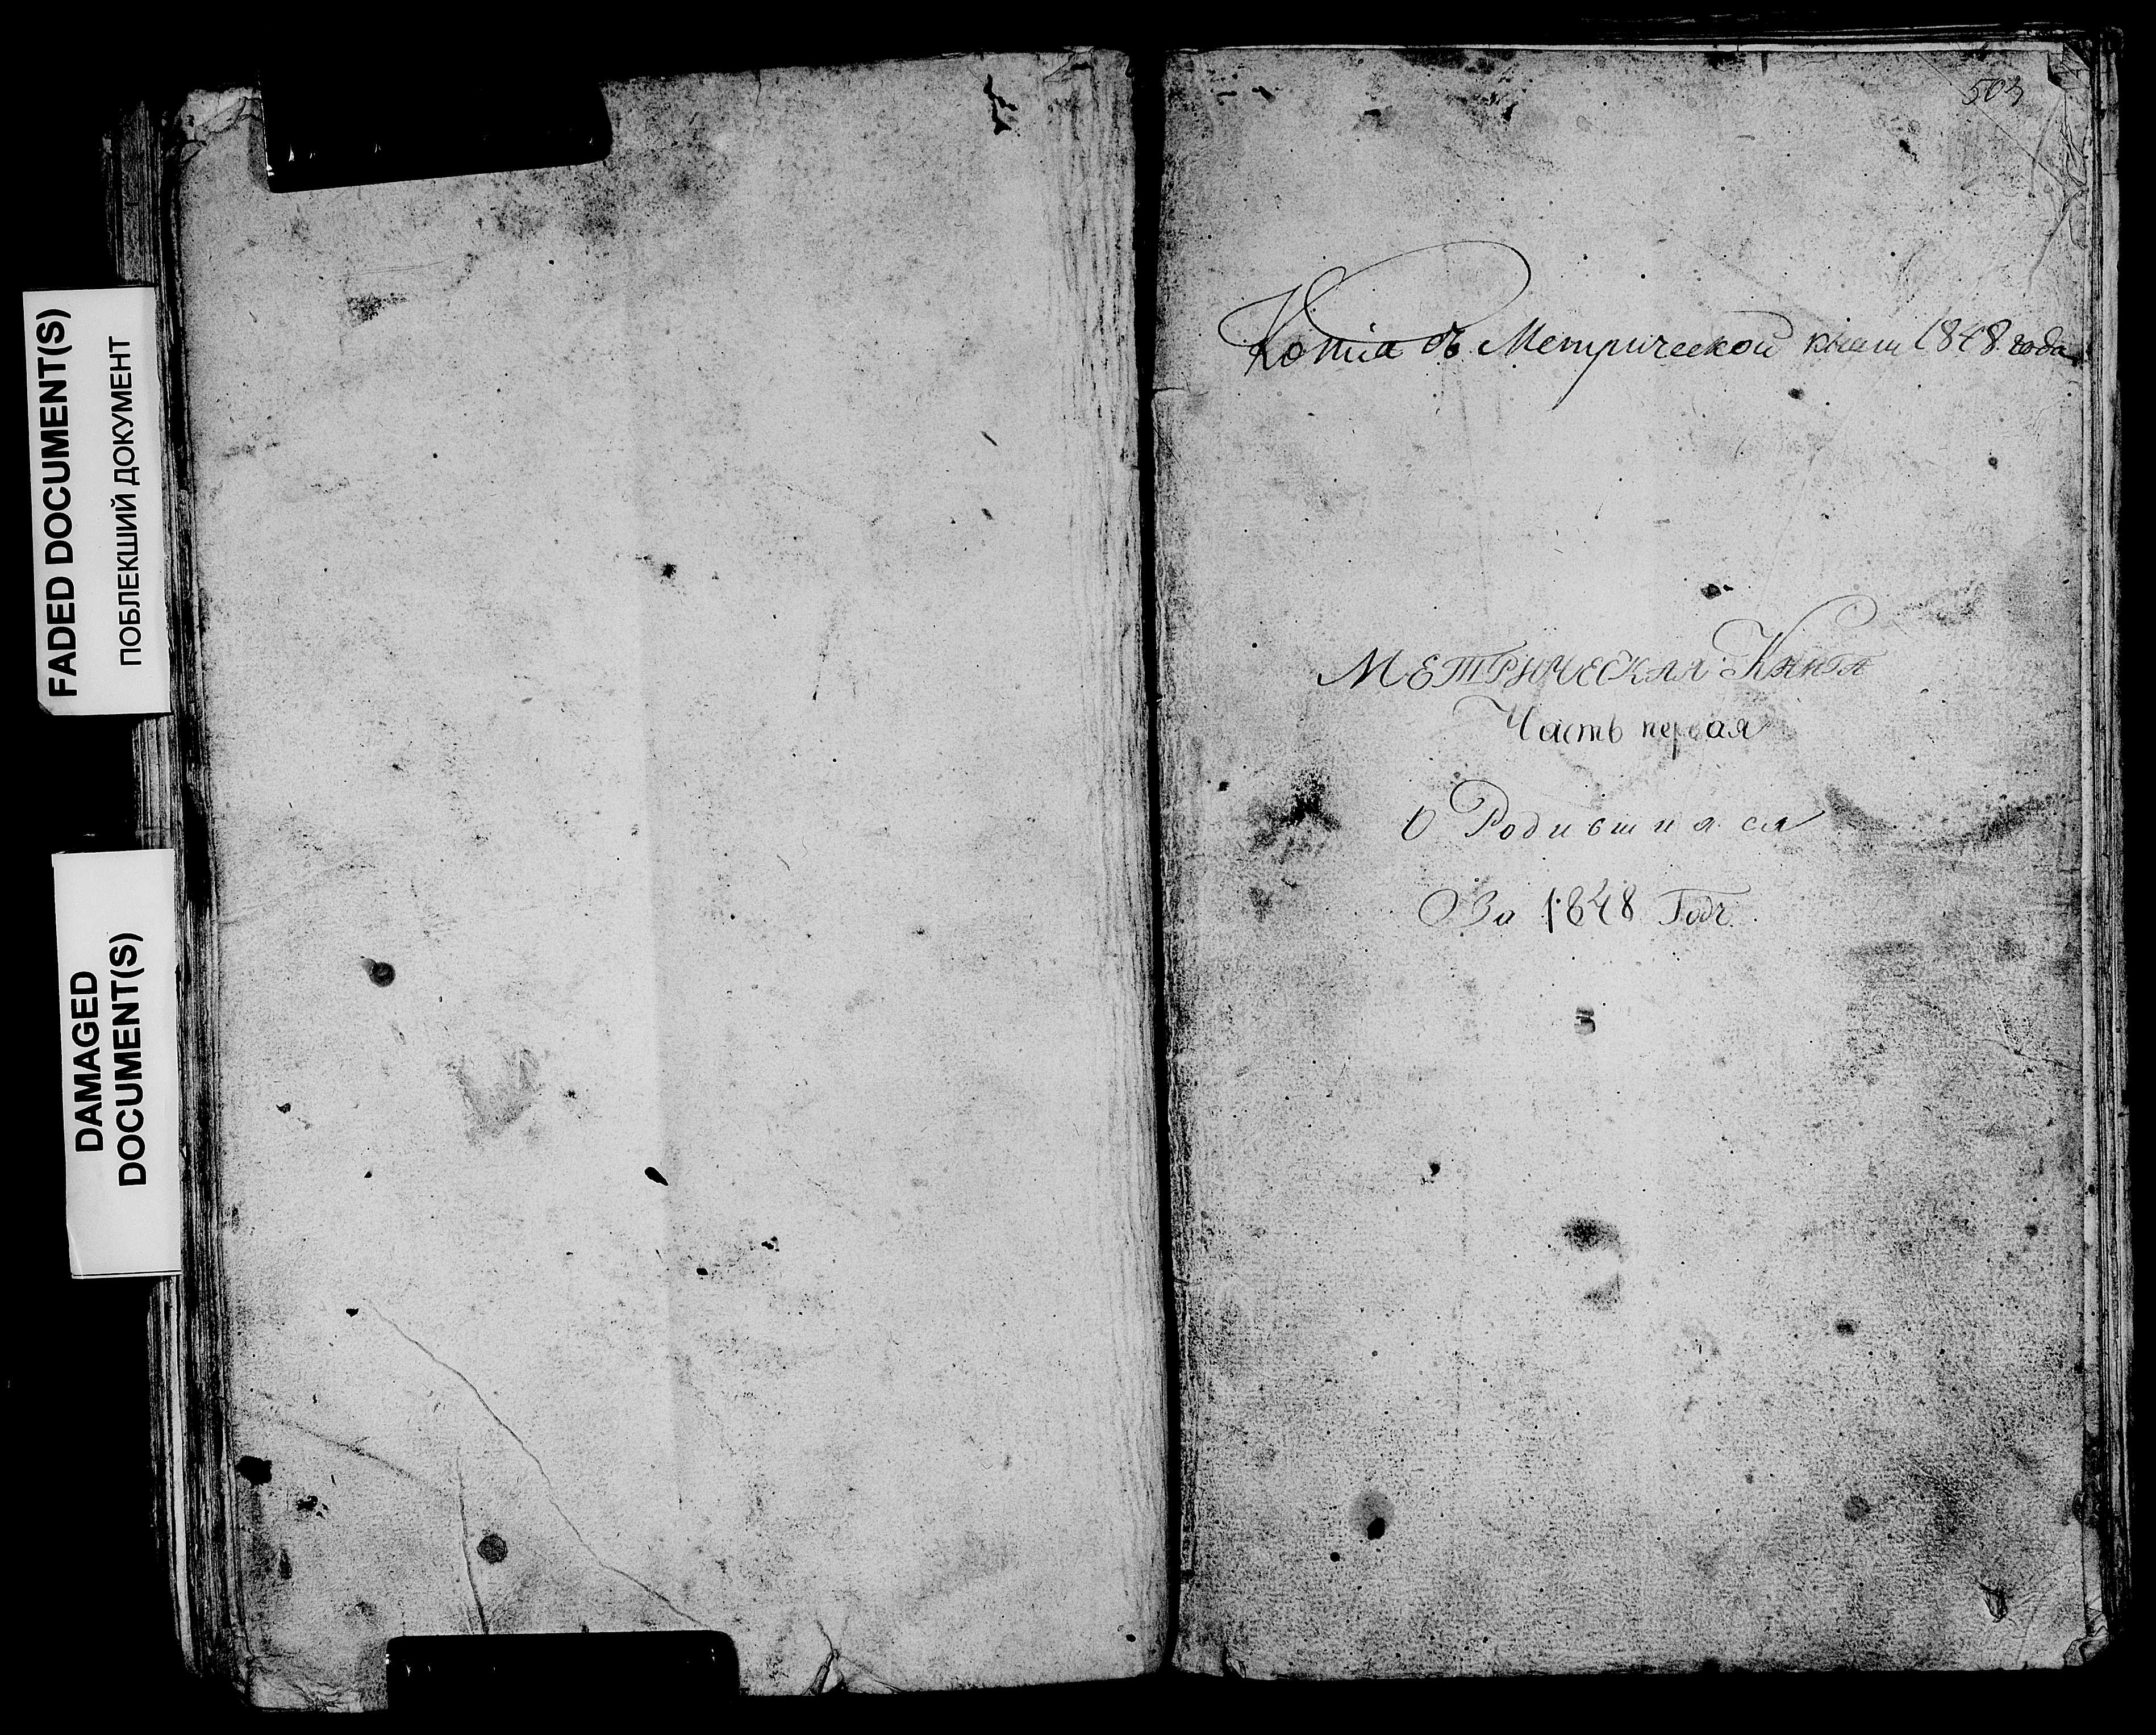 FADED DOCUMENT(S)
ПОБЛЕКШИЙ ДОКУМЕНТ
DAMAGED
DOCUMENT(S)
503
Копіа съ Метрической книги 1848 года
МЕТРИЧЕСКАЯ КНИГА
Часть первая
О Родившихся
За 1848 Годъ.